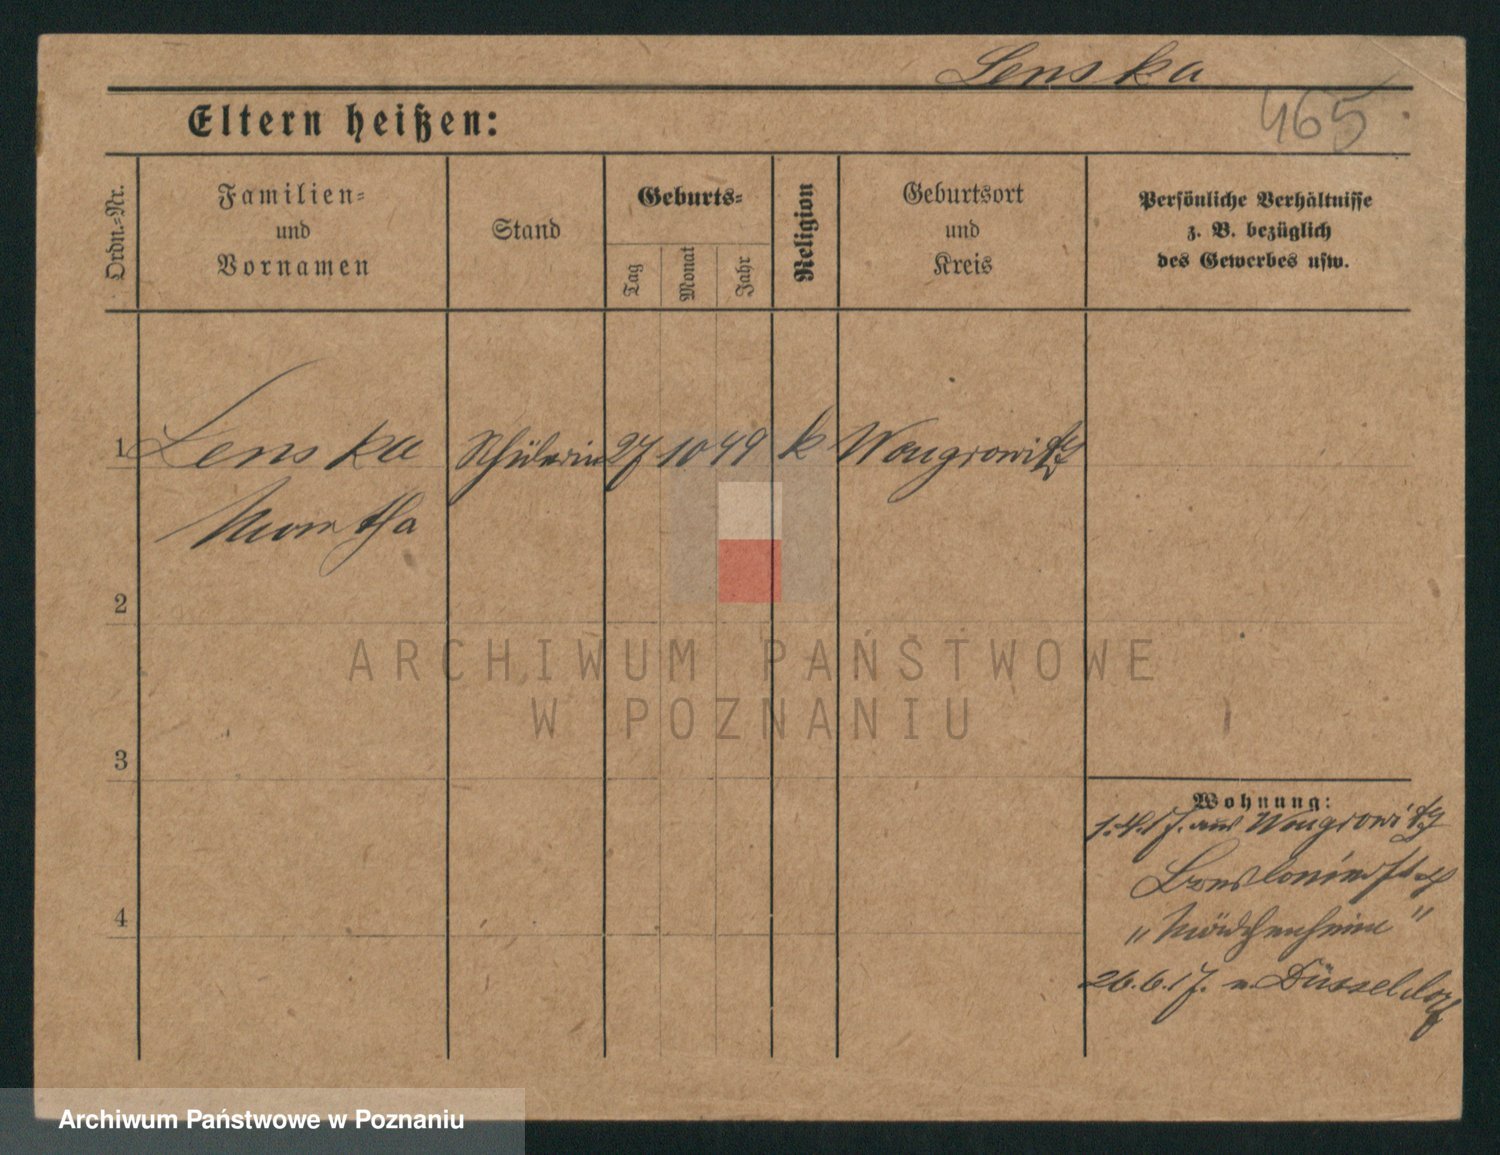 Lenska
465
Eltern heißen:
Ordn.-Nr.
Familien-
und
Vornamen
Stand
Geburts-
Tag
Monat
Jahr
Religion
Geburtsort
und
Kreis
Persönliche Verhältnisse
z. B. bezüglich
des Gewerbes usw.
1 Lenska Schülerin 27 10 99 k Wongrowitz
Martha
2
ARCHIWUM PAŃSTWOWE
W POZNANIU
3
Wohnung:
1.4.17. aus Wongrowitz
4
"Mädchenheim"
26.6.17. n. Düsseldorf
Archiwum Państwowe w Poznaniu